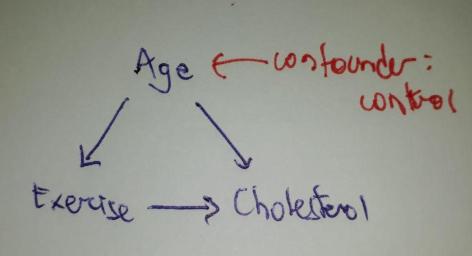 Age ← confounder:
control
Exercise → Cholesterol